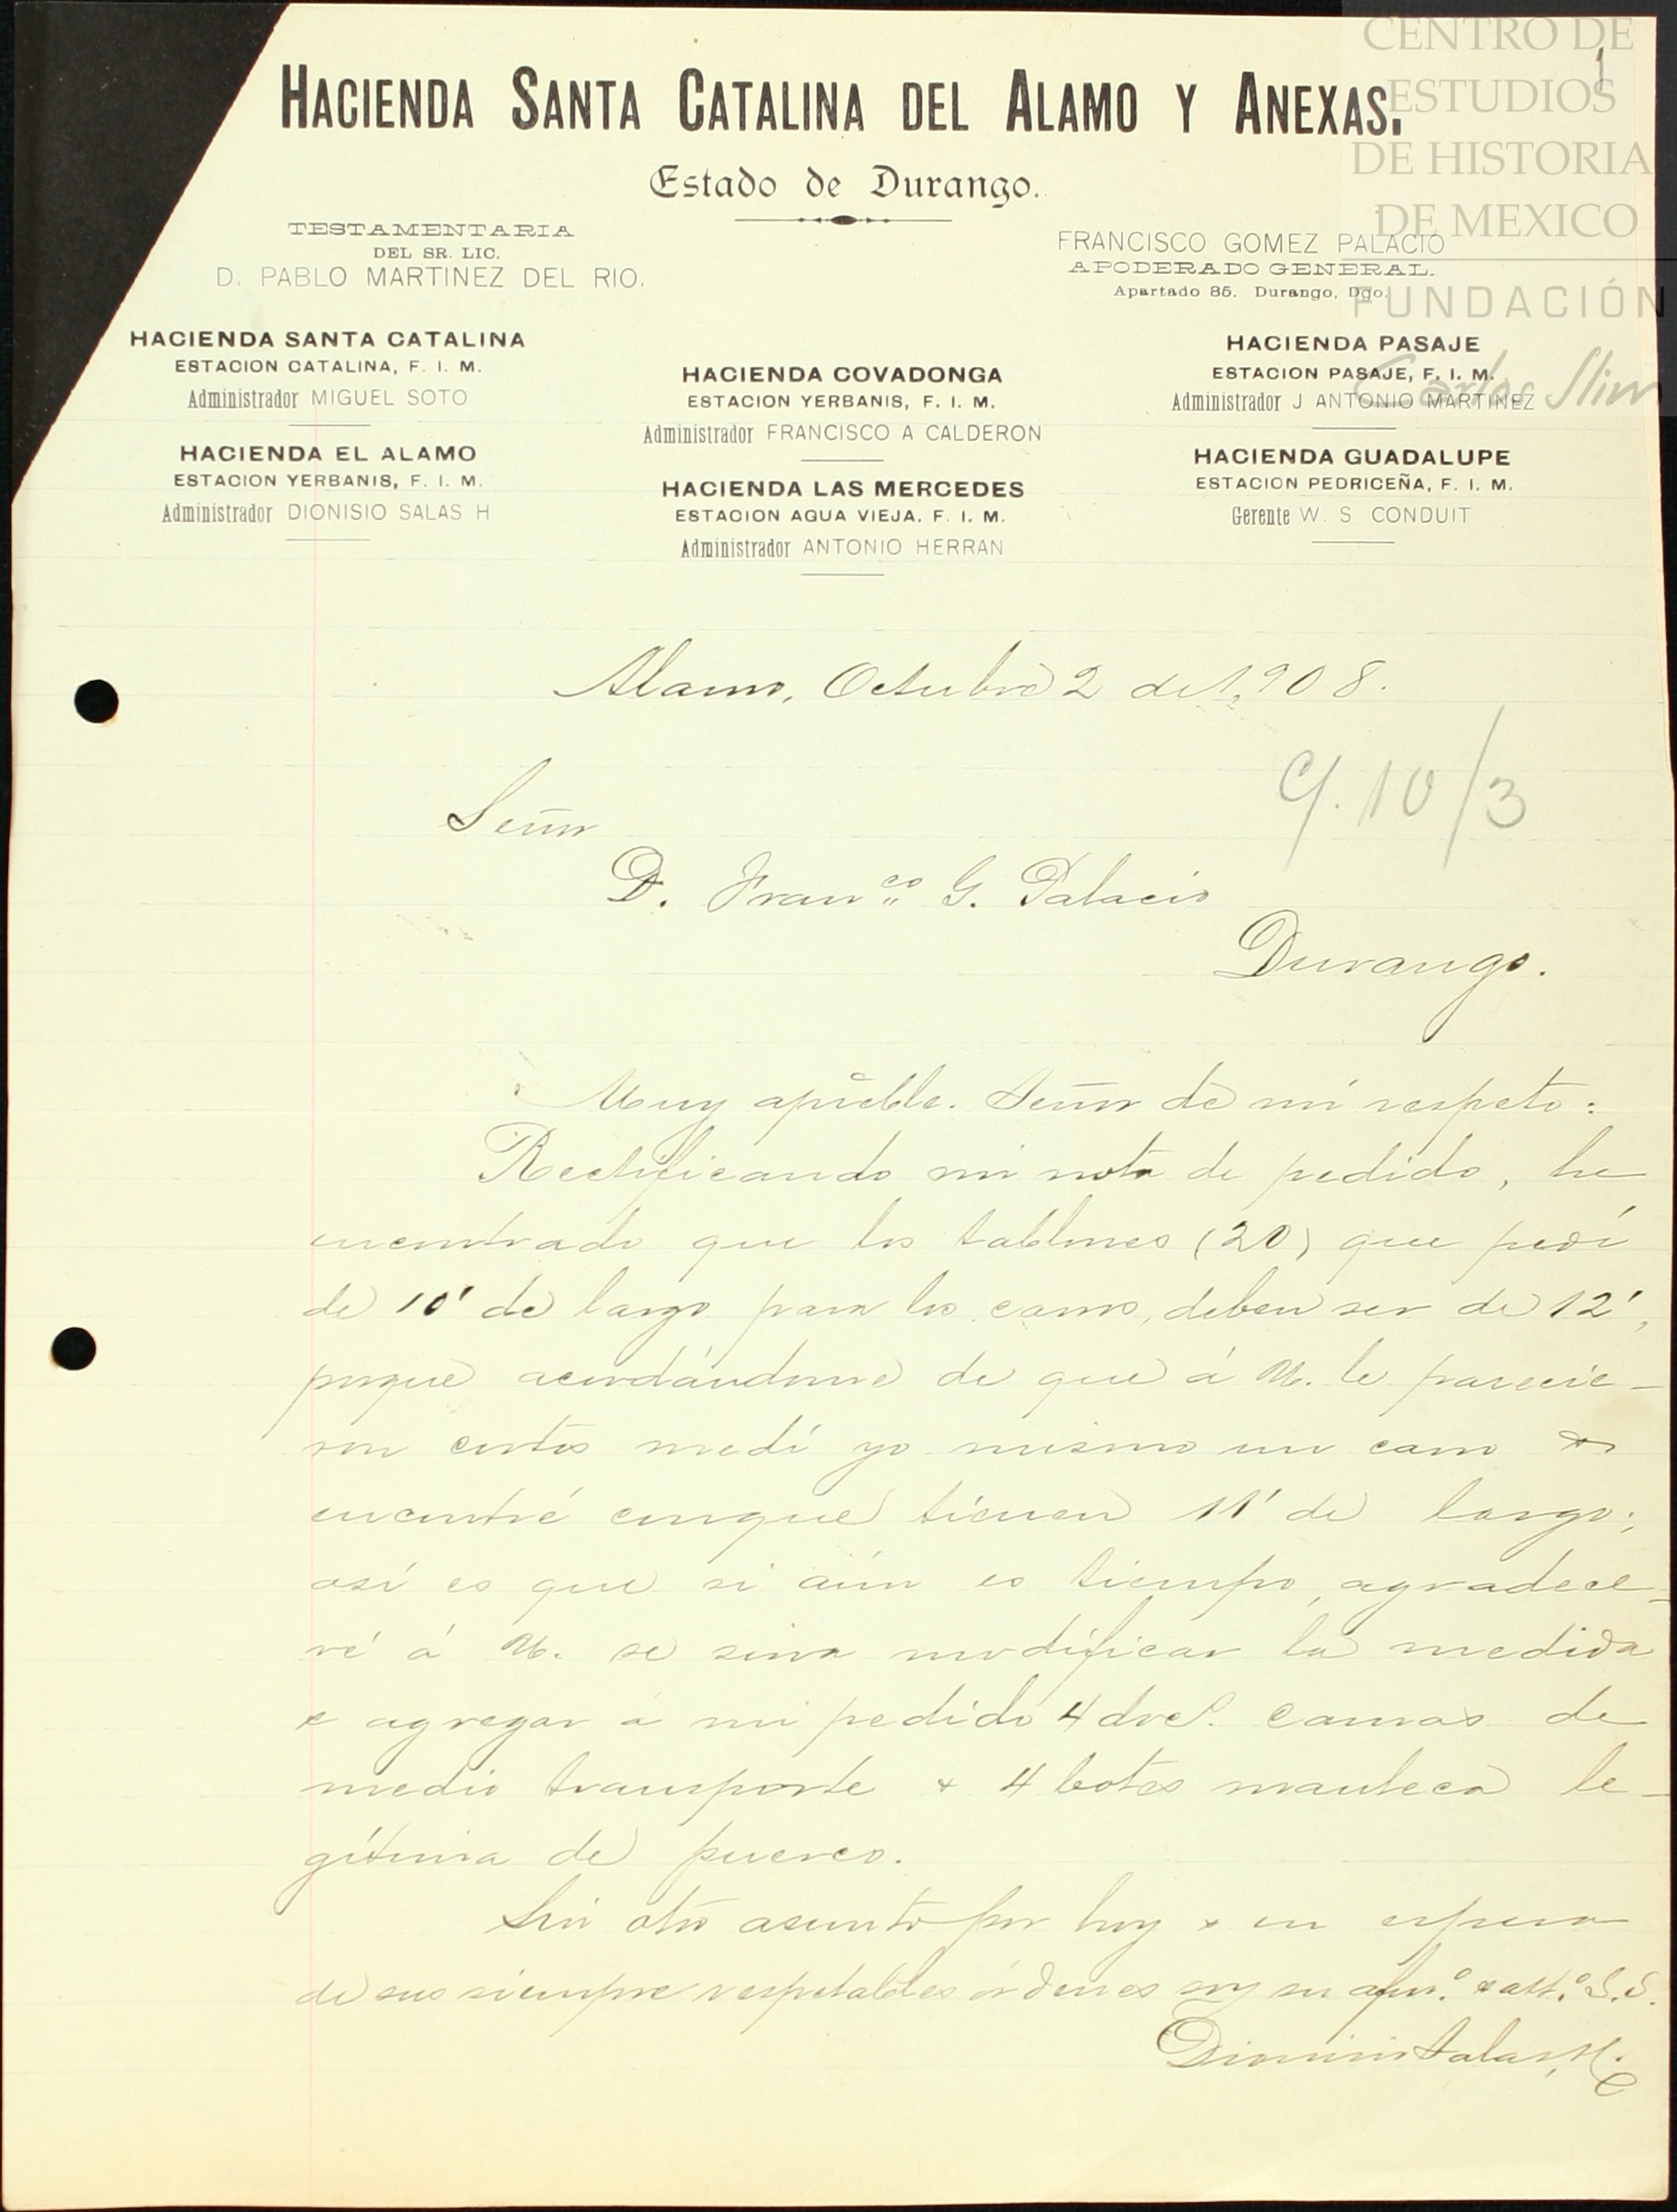 CENTRO DE
ESTUDIOS
DE HISTORIA
DE MEXICO
FUNDACIÓN
Carlos Slim
1
HACIENDA SANTA CATALINA DEL ALAMO Y ANEXAS.
Estado de Durango.
TESTAMENTARIA
DEL SR. LIC.
D. PABLO MARTINEZ DEL RIO.
FRANCISCO GOMEZ PALACIO
APODERADO GENERAL.
Apartado 85. Durango, Dgo.
HACIENDA SANTA CATALINA
ESTACION CATALINA, F. I. M.
Administrador MIGUEL SOTO
HACIENDA EL ALAMO
ESTACION YERBANIS, F. I. M.
Administrador DIONISIO SALAS H
HACIENDA COVADONGA
ESTACION YERBANIS, F. I. M.
Administrador FRANCISCO A CALDERON
HACIENDA LAS MERCEDES
ESTACION AGUA VIEJA, F. I. M.
Administrador ANTONIO HERRAN
HACIENDA PASAJE
ESTACION PASAJE, F. I. M.
Administrador J ANTONIO MARTINEZ
HACIENDA GUADALUPE
ESTACION PEDRICEÑA, F. I. M.
Gerente W. S CONDUIT
Alamo, Octubre 2 de 1,908.
C/. 10/3
Señor
D. Franco G. Palacio
Durango.
Muy apreble. Señor de mi respeto:
Rectificando mi nota de pedido, he
encontrado que los tablones (20) que pedí
de 10' de largo para los carros, deben ser de 12',
porque acordándome de que á U. le parecie-
ron cortos medí yo mismo un carro &
encontré conque tienen 11' de largo;
así es que si aún es tiempo, agradece-
ré á U. se sirva modificar la medida
e agregar á mi pedido 4 doc. camas de
medio transporte & 4 botes manteca le-
gítima de puerco.
Sin otro asunto por hoy & en espera
de sus siempre respetables órdenes soy su afmo. & atto. S.S.
Dionisio Salas H.